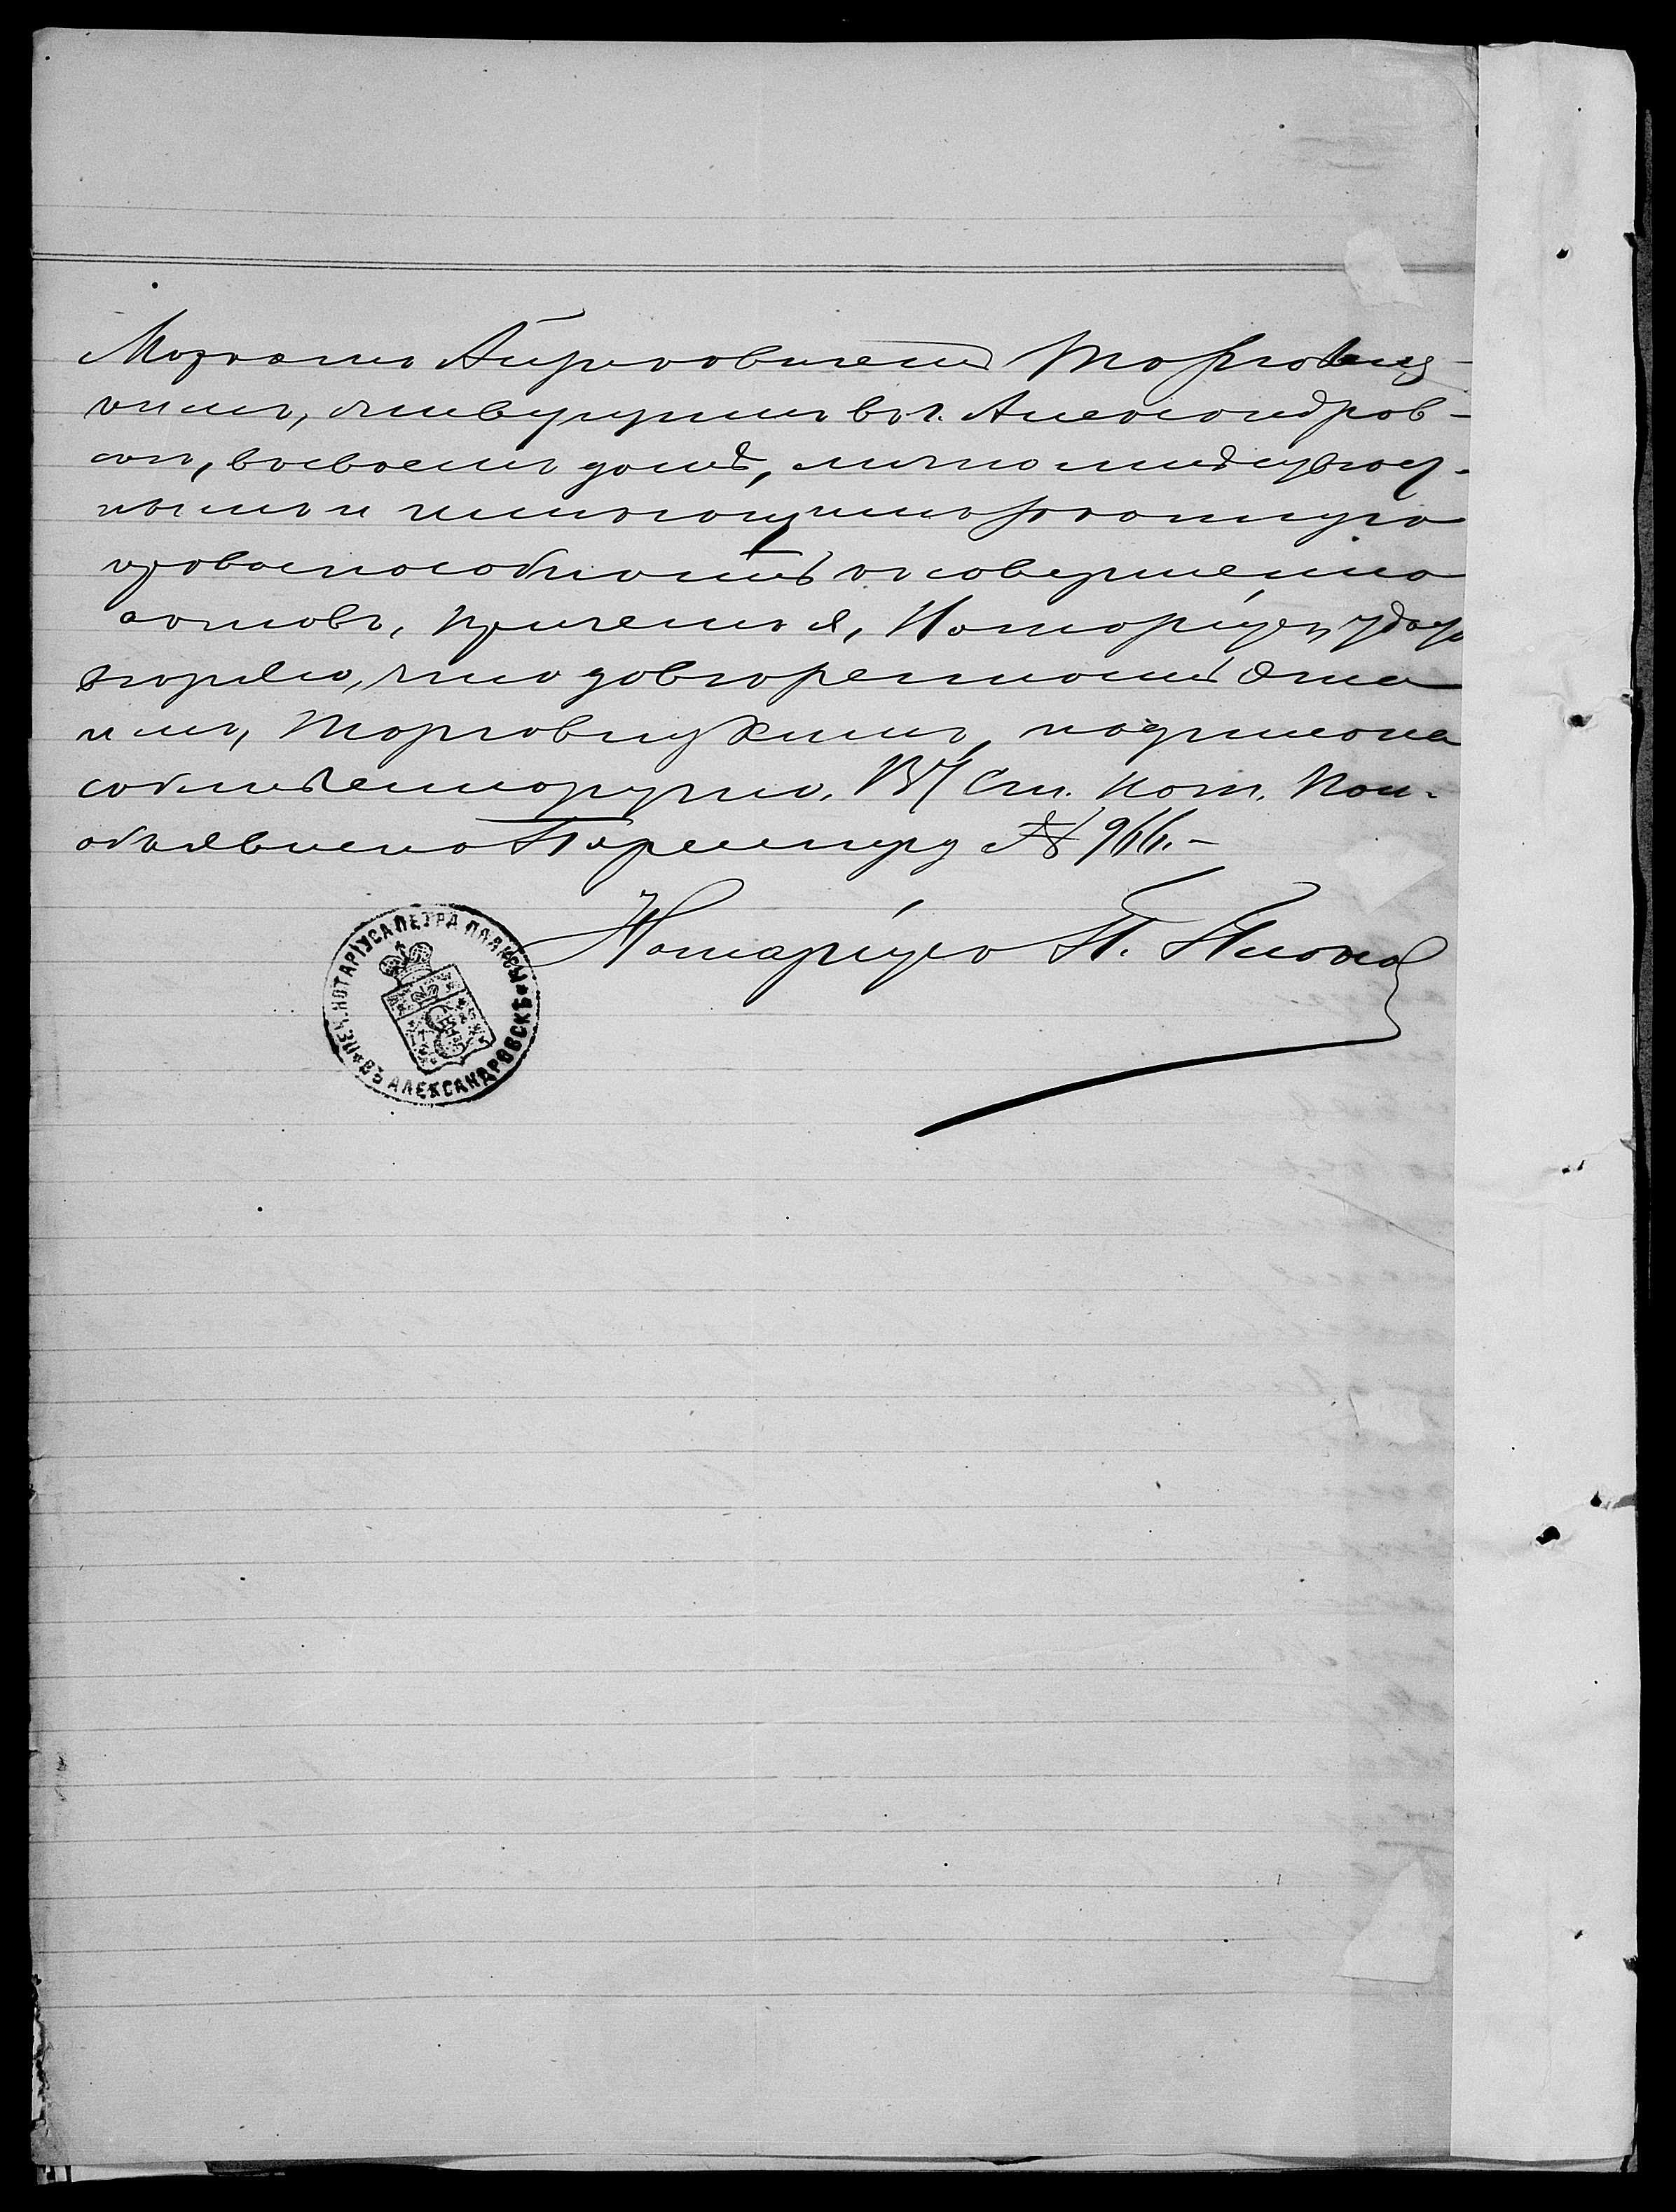 Торговиц-
кимъ, живущимъ въ г. Александров-
скѣ, въ своемъ домѣ, лично мнѣ извѣст-
нымъ и имѣющимъ законную
правоспособность къ совершенію
актовъ, причемъ я, Нотаріусъ, удосто-
вѣряю, что довѣренность эта
имъ, Торговицкимъ, подписана
собственноручно. 134 Ст. Нот. Пол.
объявлено По реестру № 966.-
Нотаріусъ П. Плакса
ПЕЧ. НОТАРІУСА ПЕТРА ПЛАКСЫ ВЪ АЛЕКСАНДРОВСКѢ